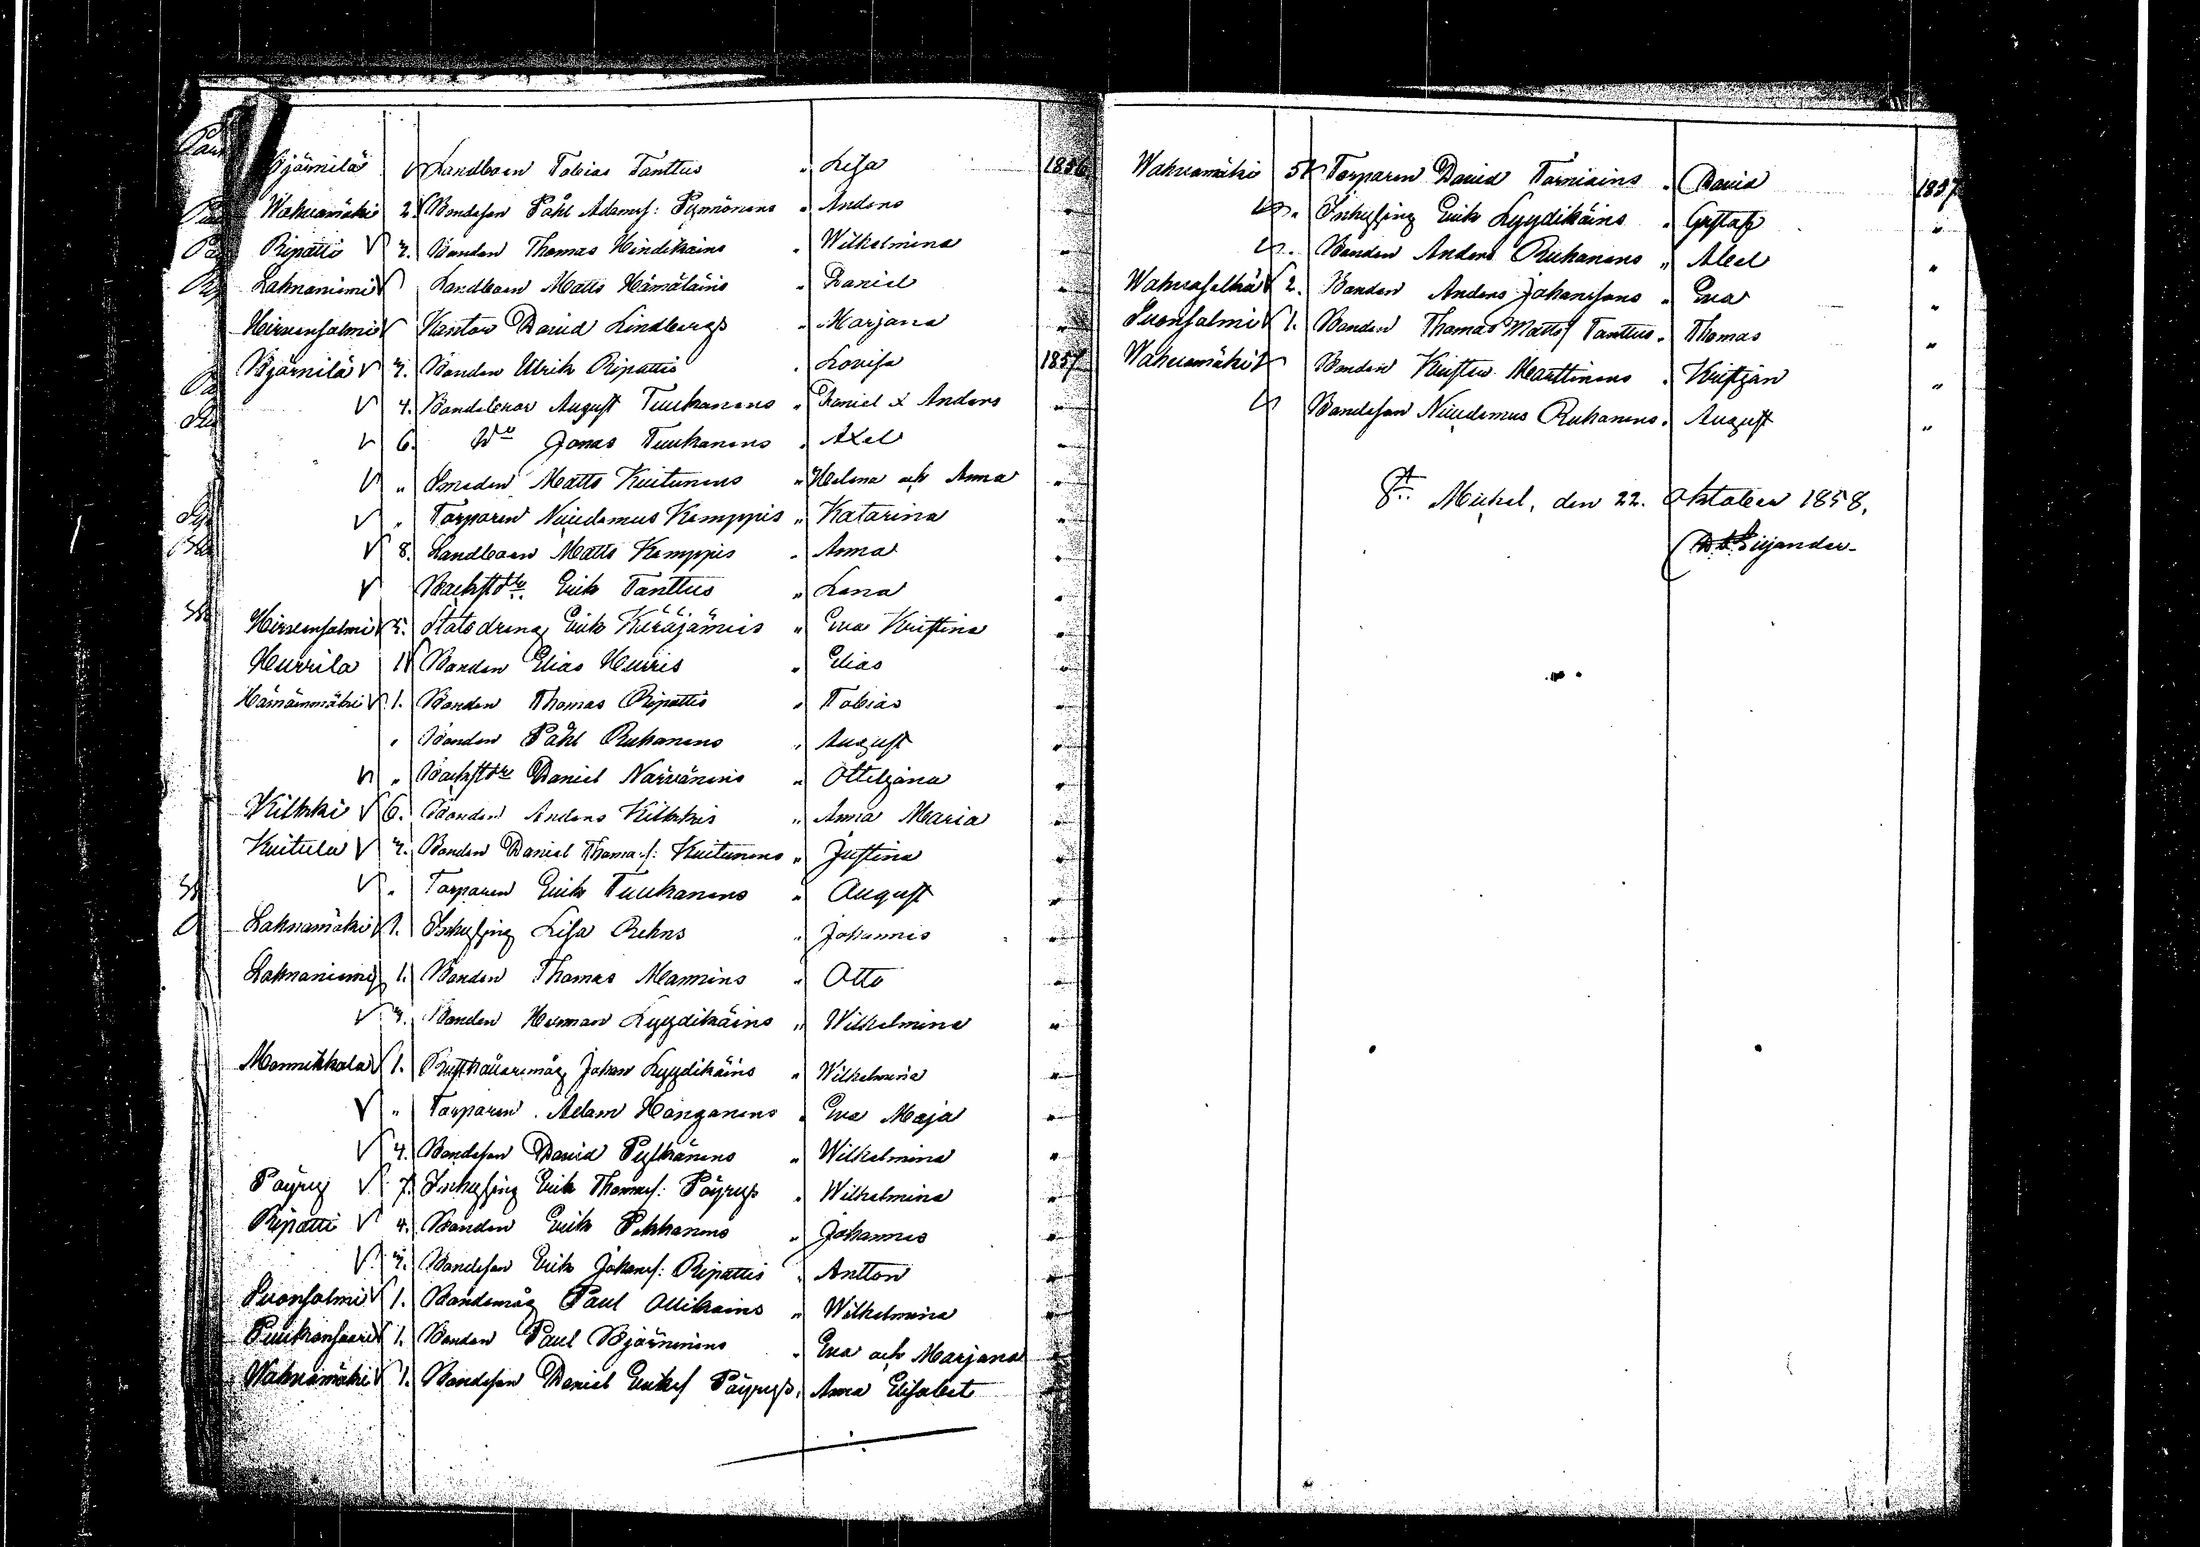 Bjärnilä √ Landboen Tobias Tanttus " Lisa 1856
Wahvamäki 2. √ Bondeson Påhl Adamss: Pynnönens " Anders "
Ripatti √ 3. Bonden Thomas Hindikäins " Wilhelmina "
Lahnaniemi √ Landboen Matts Hämäläins " Daniel "
Hirvensalmi √ Kantor David Lindbergs " Marjana "
Bjärnilä √ 3. Bonden Ulrik Ripattis " Lovisa 1857
√ 4. Bondebror August Tuukanens " Daniel & Anders "
√ 6. Do Jonas Tuukanens " Axel "
√ " Smeden Matts Kuitunens " Helena och Anna "
√ " Torparen Nicodemus Kemppis " Katarina "
√ 8. Landboen Matts Kemppis " Anna "
√ Erik Tanttus " Lena "
Hirvensalmi √ 5. Statsdreng Erik Keräjämies " Eva Kristina "
Hurrila 1 √ Bonden Elias Hurris " Elias "
Hämäinmäki √ 1. Bonden Thomas Ripattis " Tobias "
" Bonden Påhl Ruhanens " August "
√ " Daniel Narvänens " Ottiljana "
Kilkki √ 6. Bonden Anders Kilkkis " Anna Maria "
Kuitula √ 3. Bonden Daniel Thomass: Kuitunens " Justina "
√ " Torparen Erik Tuukanens " August "
Lahnamäki √ 1. Inhysing Lisa Rehns " Johannes "
Lahnaniemi 1. Bonden Thomas Mannins " Otto "
√ 3. Bonden Herman Lyydikäins " Wilhelmina "
Monnikkala √ 1. Johan Lyydikäins " Wilhelmina "
√ " Torparen Adam Hanganens " Eva Maja "
√ 4. Bondeson David Pylkänens " Wilhelmina "
Päyry √ 7. Inhysing Erik Thomass: Päyrys " Wilhelmina "
Ripatti √ 4. Bonden Erik Pekkanens " Johannes "
√ 3. Bondeson Erik Johanss: Ripattis " Antton "
Suonsalmi √ 1. Bondemåg Paul Ollikains " Wilhelmina "
Puukonsaari √ 1. Bonden Paul Bjärninens " Eva och Marjana "
Wahvamäki √ 1. Bondeson Daniel Erikss Päyrys " Anna Elisabet "
Wahvamäki 5 √ Torparen David Tarniains " David 1857
√ " Inhysing Erik Lyydikäins " Gustaf "
√ " Bonden Anders Ruhanens " Abel "
Wahvaselkä √ 2. Bonden Anders Johanssons " Eva "
Suonsalmi √ 1. Bonden Thomas Mattss Tanttus " Thomas "
Wahvamäki √ Bonden Kristian Marttinens " Kristjan "
√ Bondeson Nicodemus Ruhanens " August "
St. Michel, den 22. Oktober 1858.